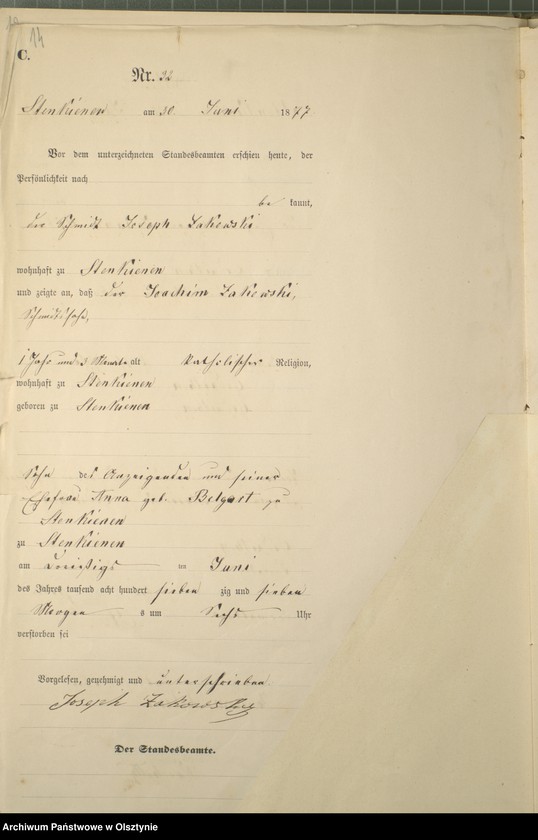 14
C.
Nr. 32
Stenkienen am 30 Juni 1877
Vor dem unterzeichneten Standesbeamten erschien heute, der
Persönlichkeit nach
be kannt,
der Schmidt Joseph Zakewski
wohnhaft zu Stenkienen
und zeigte an, daß der Joachim Zakewski,
Schmidtsohn,
1 Jahr und 3 Monate alt katholischer Religion,
wohnhaft zu Stenkienen
geboren zu Stenkienen
Sohn des Anzeigenden und seiner
Ehefrau Anna geb. Belgart zu
Stenkienen
zu Stenkienen
am dreißigs Juni
des Jahres tausend acht hundert sieben zig und sieben
Morgen s um Sechs Uhr
verstorben sei
Vorgelesen, genehmigt und unterschrieben
Joseph Zakowsky
Der Standesbeamte.
Archiwum Państwowe w Olsztynie